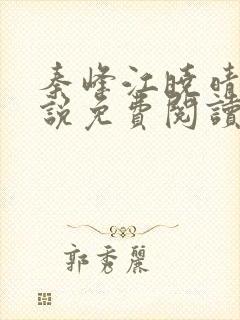 秦峰江曉晴
說免費閱讀
郭秀麗